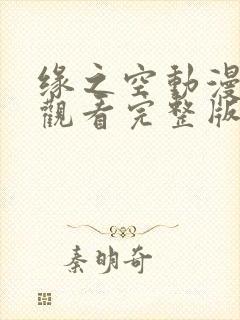 缘之空動漫
觀看完整版
秦明奇